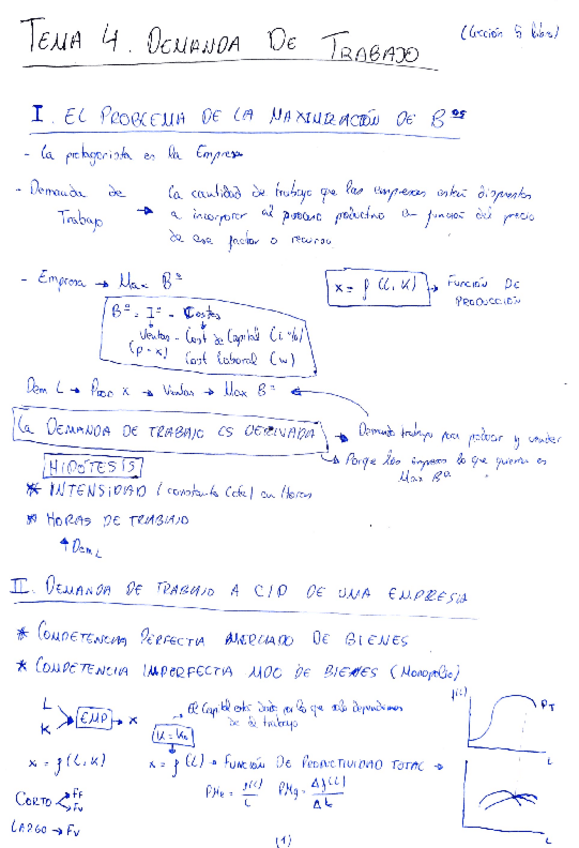 TEMA 4. DEMANDA DE TRABAJO (Lección 5 libro)
I. EL PROBLEMA DE LA MAXIMIZACIÓN DE Bos
- La protagonista es la Empresa
- Demanda de Trabajo → La cantidad de trabajo que las empresas están dispuestas
a incorporar al proceso productivo en función del precio
de ese factor o recurso
- Empresa → Max Bº
x = f (L, K) → FUNCIÓN DE PRODUCCIÓN
Bº = Iº - Costes
Ventas - Cost de Capital (i %)
(p · x) Cost Laboral (w)
Dem L → Prod x → Ventas → Max Bº
La DEMANDA DE TRABAJO ES DERIVADA → Demando trabajo para producir y vender
→ Porque las empresas lo que quieren es
Max Bº
HIPÓTESIS
* INTENSIDAD (constante (cte) en Horas
* HORAS DE TRABAJO
↑ Dem L
II. DEMANDA DE TRABAJO A C/P DE UNA EMPRESA
* COMPETENCIA PERFECTA MERCADO DE BIENES
* COMPETENCIA IMPERFECTA MDO DE BIENES (Monopolio)
L
K
EMP → x
El Capital está dado por lo que solo dependemos
de el trabajo
K = K0
x = f (L, K)
x = f (L) → FUNCIÓN DE PRODUCTIVIDAD TOTAL →
PMe = f(L) / L PMg = Δf(L) / ΔL
CORTO FF
FV
LARGO → FV
f(L)
PT
L
L
(1)